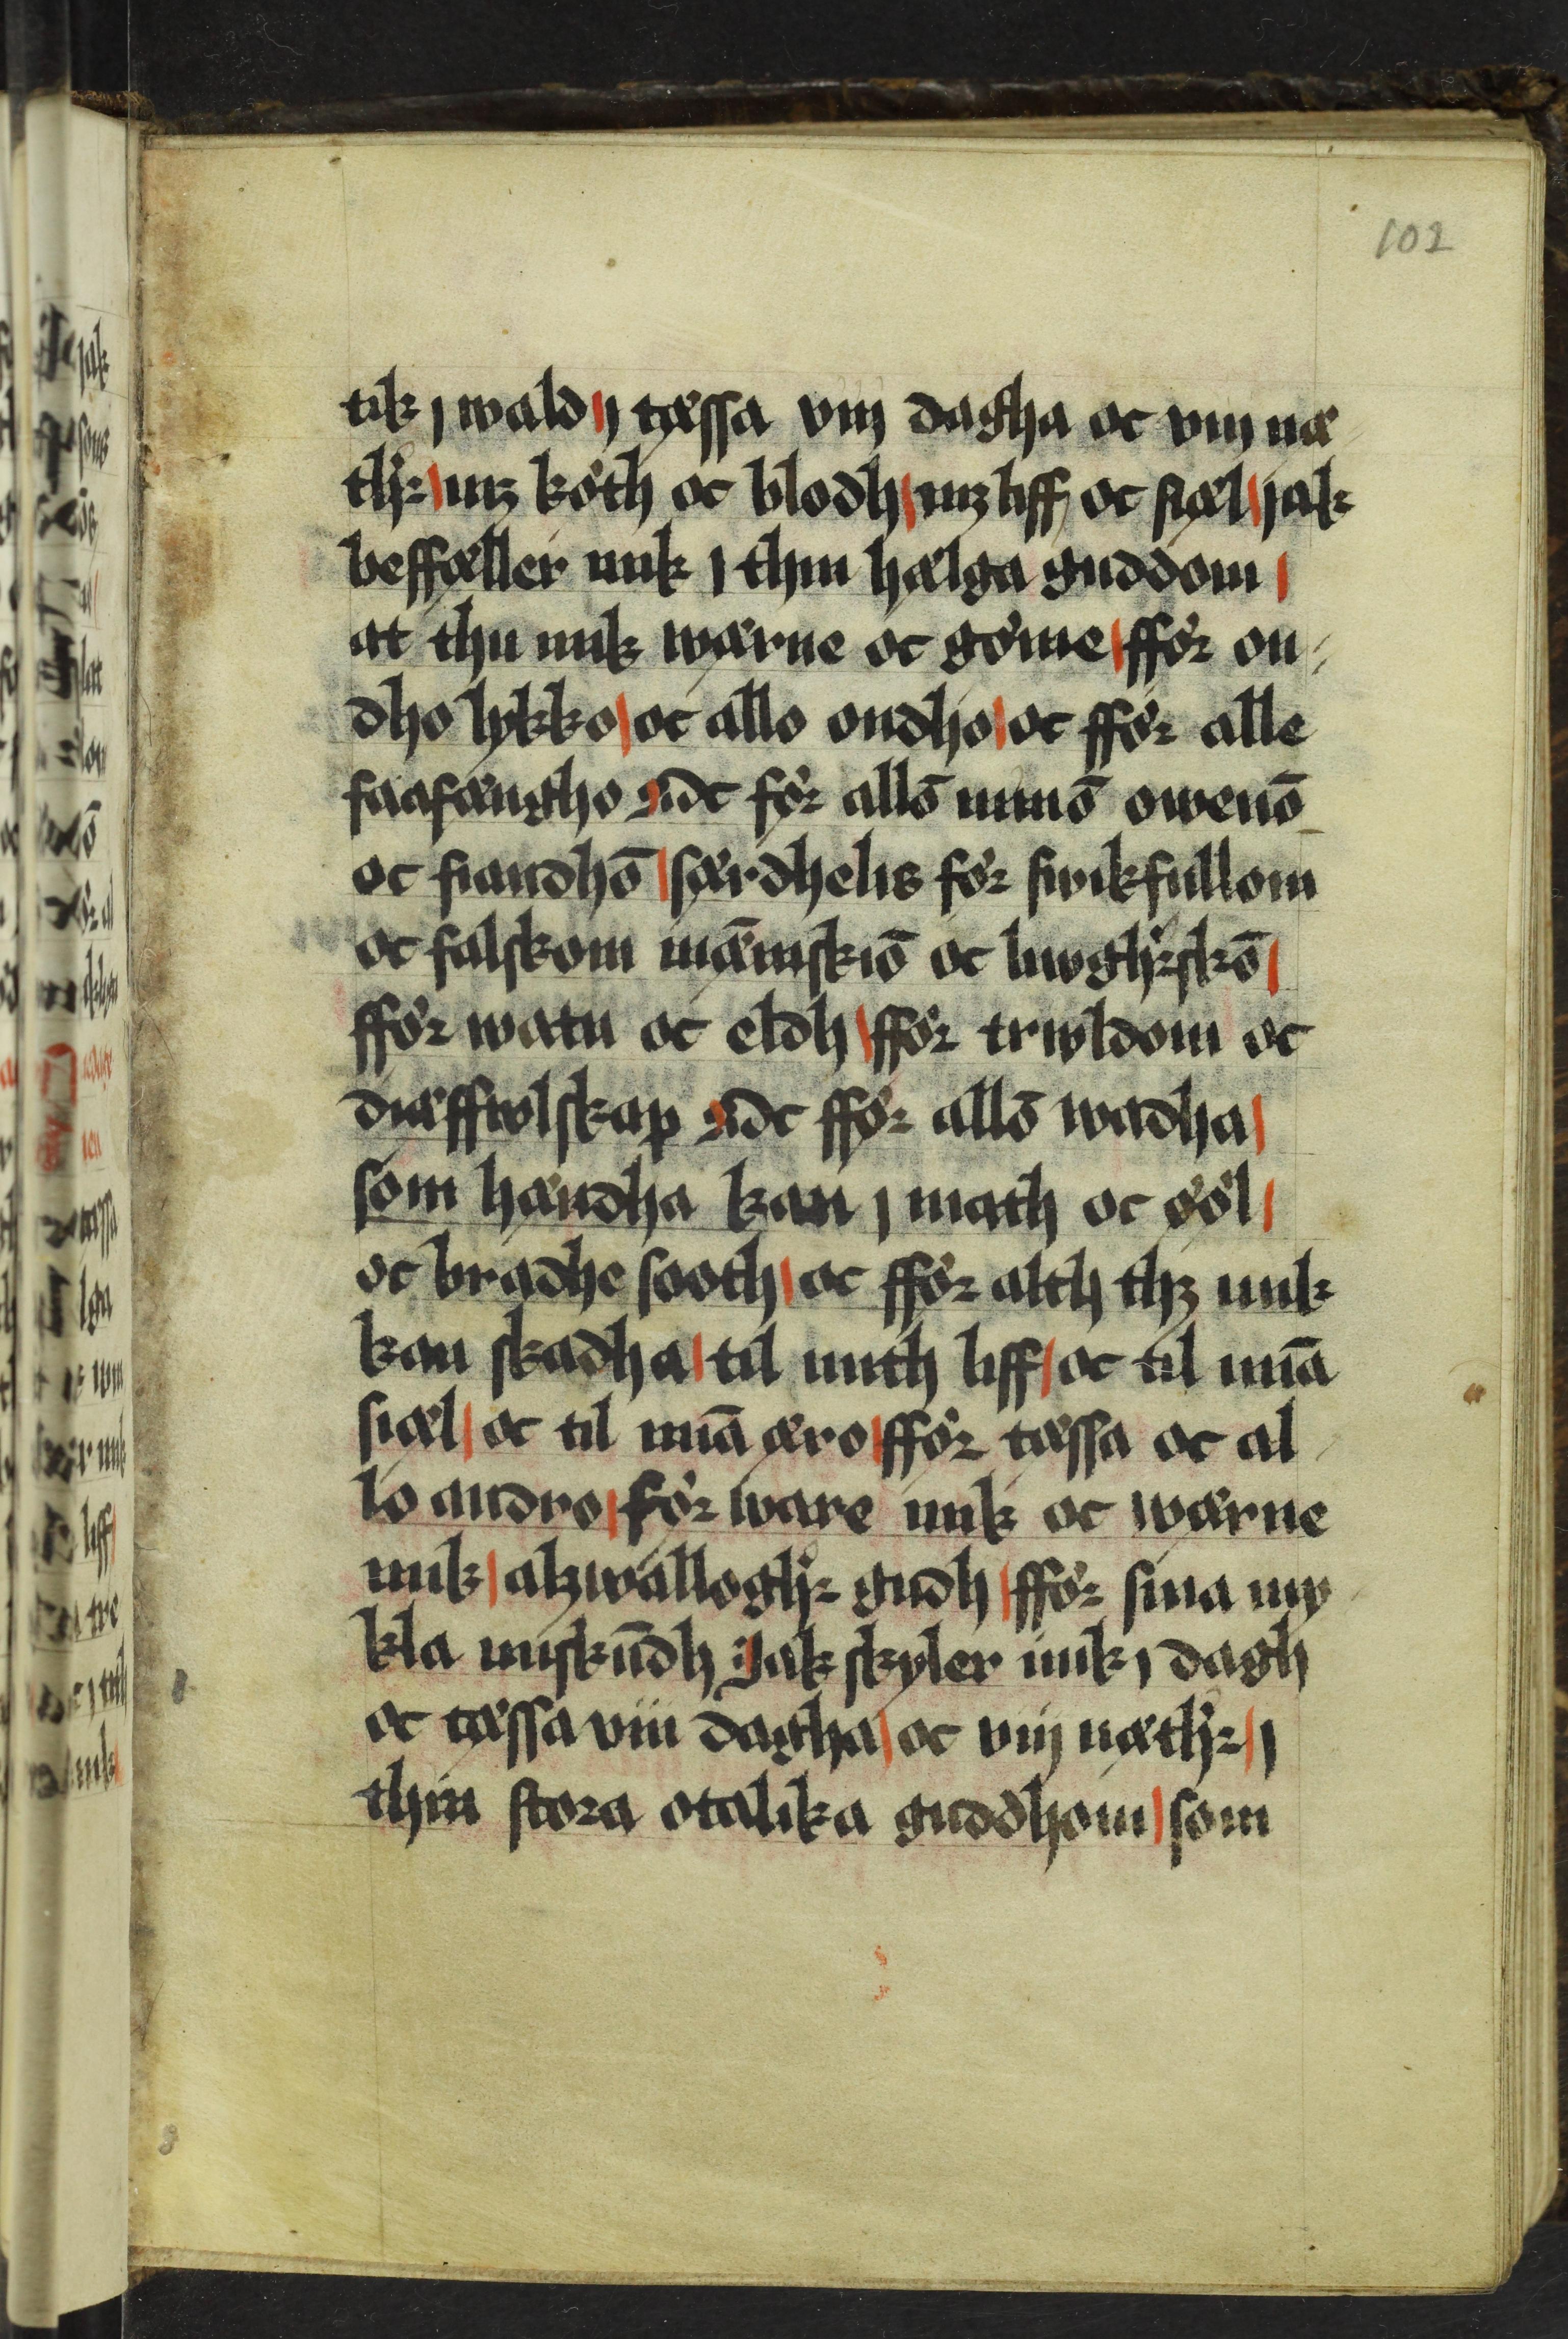 102
tik j wald j tæssa viij dagha oc viij næ
thr mz köth oc blodh mz liff oc siæl jak
beffæller mik j thin hælga guddom
at thu mik wærne oc göme fför on
dho lykko oc allo ondho oc ffor alle
faafængho Oc för allō minō owenō
oc fiandhō særdhelis för swikfullom
oc falskom mǣniskiō oc liwghrskō
ffór watn oc eldh ffór trwldom oc
diæffwlskap Oc ffór allō wadha
som hændha kan j math oc ööl
oc bradhe sooth oc ffór alth thz mik
kan skadha til mith liff oc til mīa
siæl oc til mīa æro ffór tæssa oc al
lo andro för ware mik oc wærne
mik alzwalloghr gudh ffór sina my
kla miskūdh Jak skyler mik j dagh
oc tæssa viii dagha oc viij næthr j
thin stora otalika guddhom som